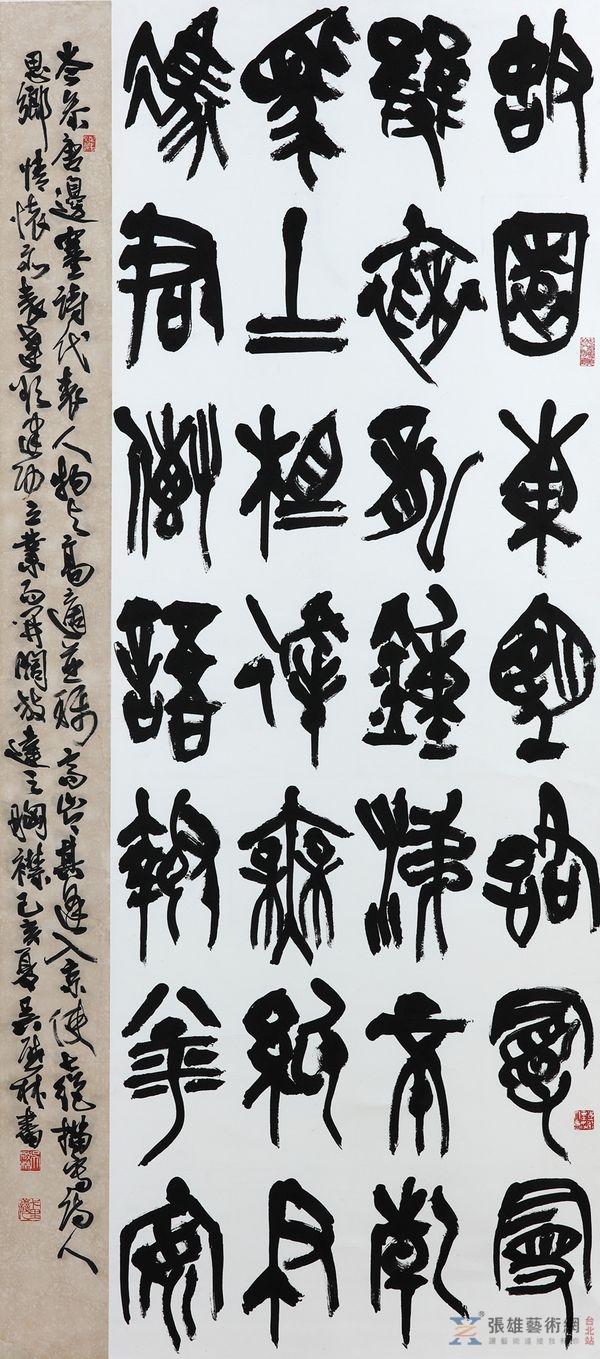 故園東望路漫漫
雙袖龍鐘淚不乾
馬上相逢無紙筆
憑君傳語報平安
岑參唐邊塞詩代表人物與高適並稱高岑其逢入京使七絕描寫詩人
思鄉情懷亦表達欲建功立業而開闊放達之胸襟己亥夏吳啟林書
張雄藝術網
台北站